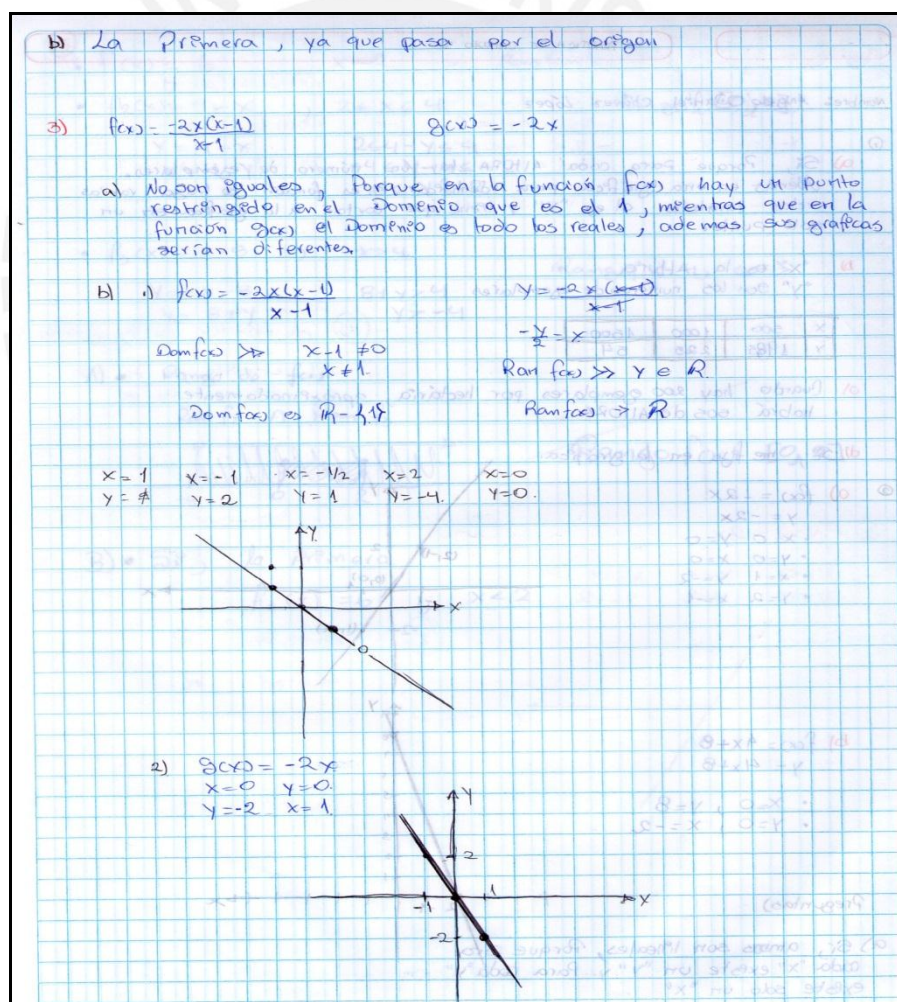 b) La Primera, ya que pasa por el origen
3) f(x) = -2x(x-1)/x-1 g(x) = -2x
a) No son iguales, Porque en la función f(x) hay un punto
restringido en el Dominio que es el 1, mientras que en la
función g(x) el Dominio es todo los reales, ademas sus graficas
serían diferentes.
b) 1) f(x) = -2x(x-1)/x-1 y = -2x(x-1)/x-1
-y/2 = x
Domf(x) >> x-1 ≠0
x ≠ 1.
Ran f(x) >> y e R.
Domf(x) es R-{1} Ranf(x) → R
x = 1 x = -1 x = -1/2 x = 2 x = 0
y = ∄ y = 2 y = 1 y = -4. y = 0.
y
x
2) g(x) = -2x
x=0 y=0.
y=-2 x=1.
y
2
-1 1 x
-2